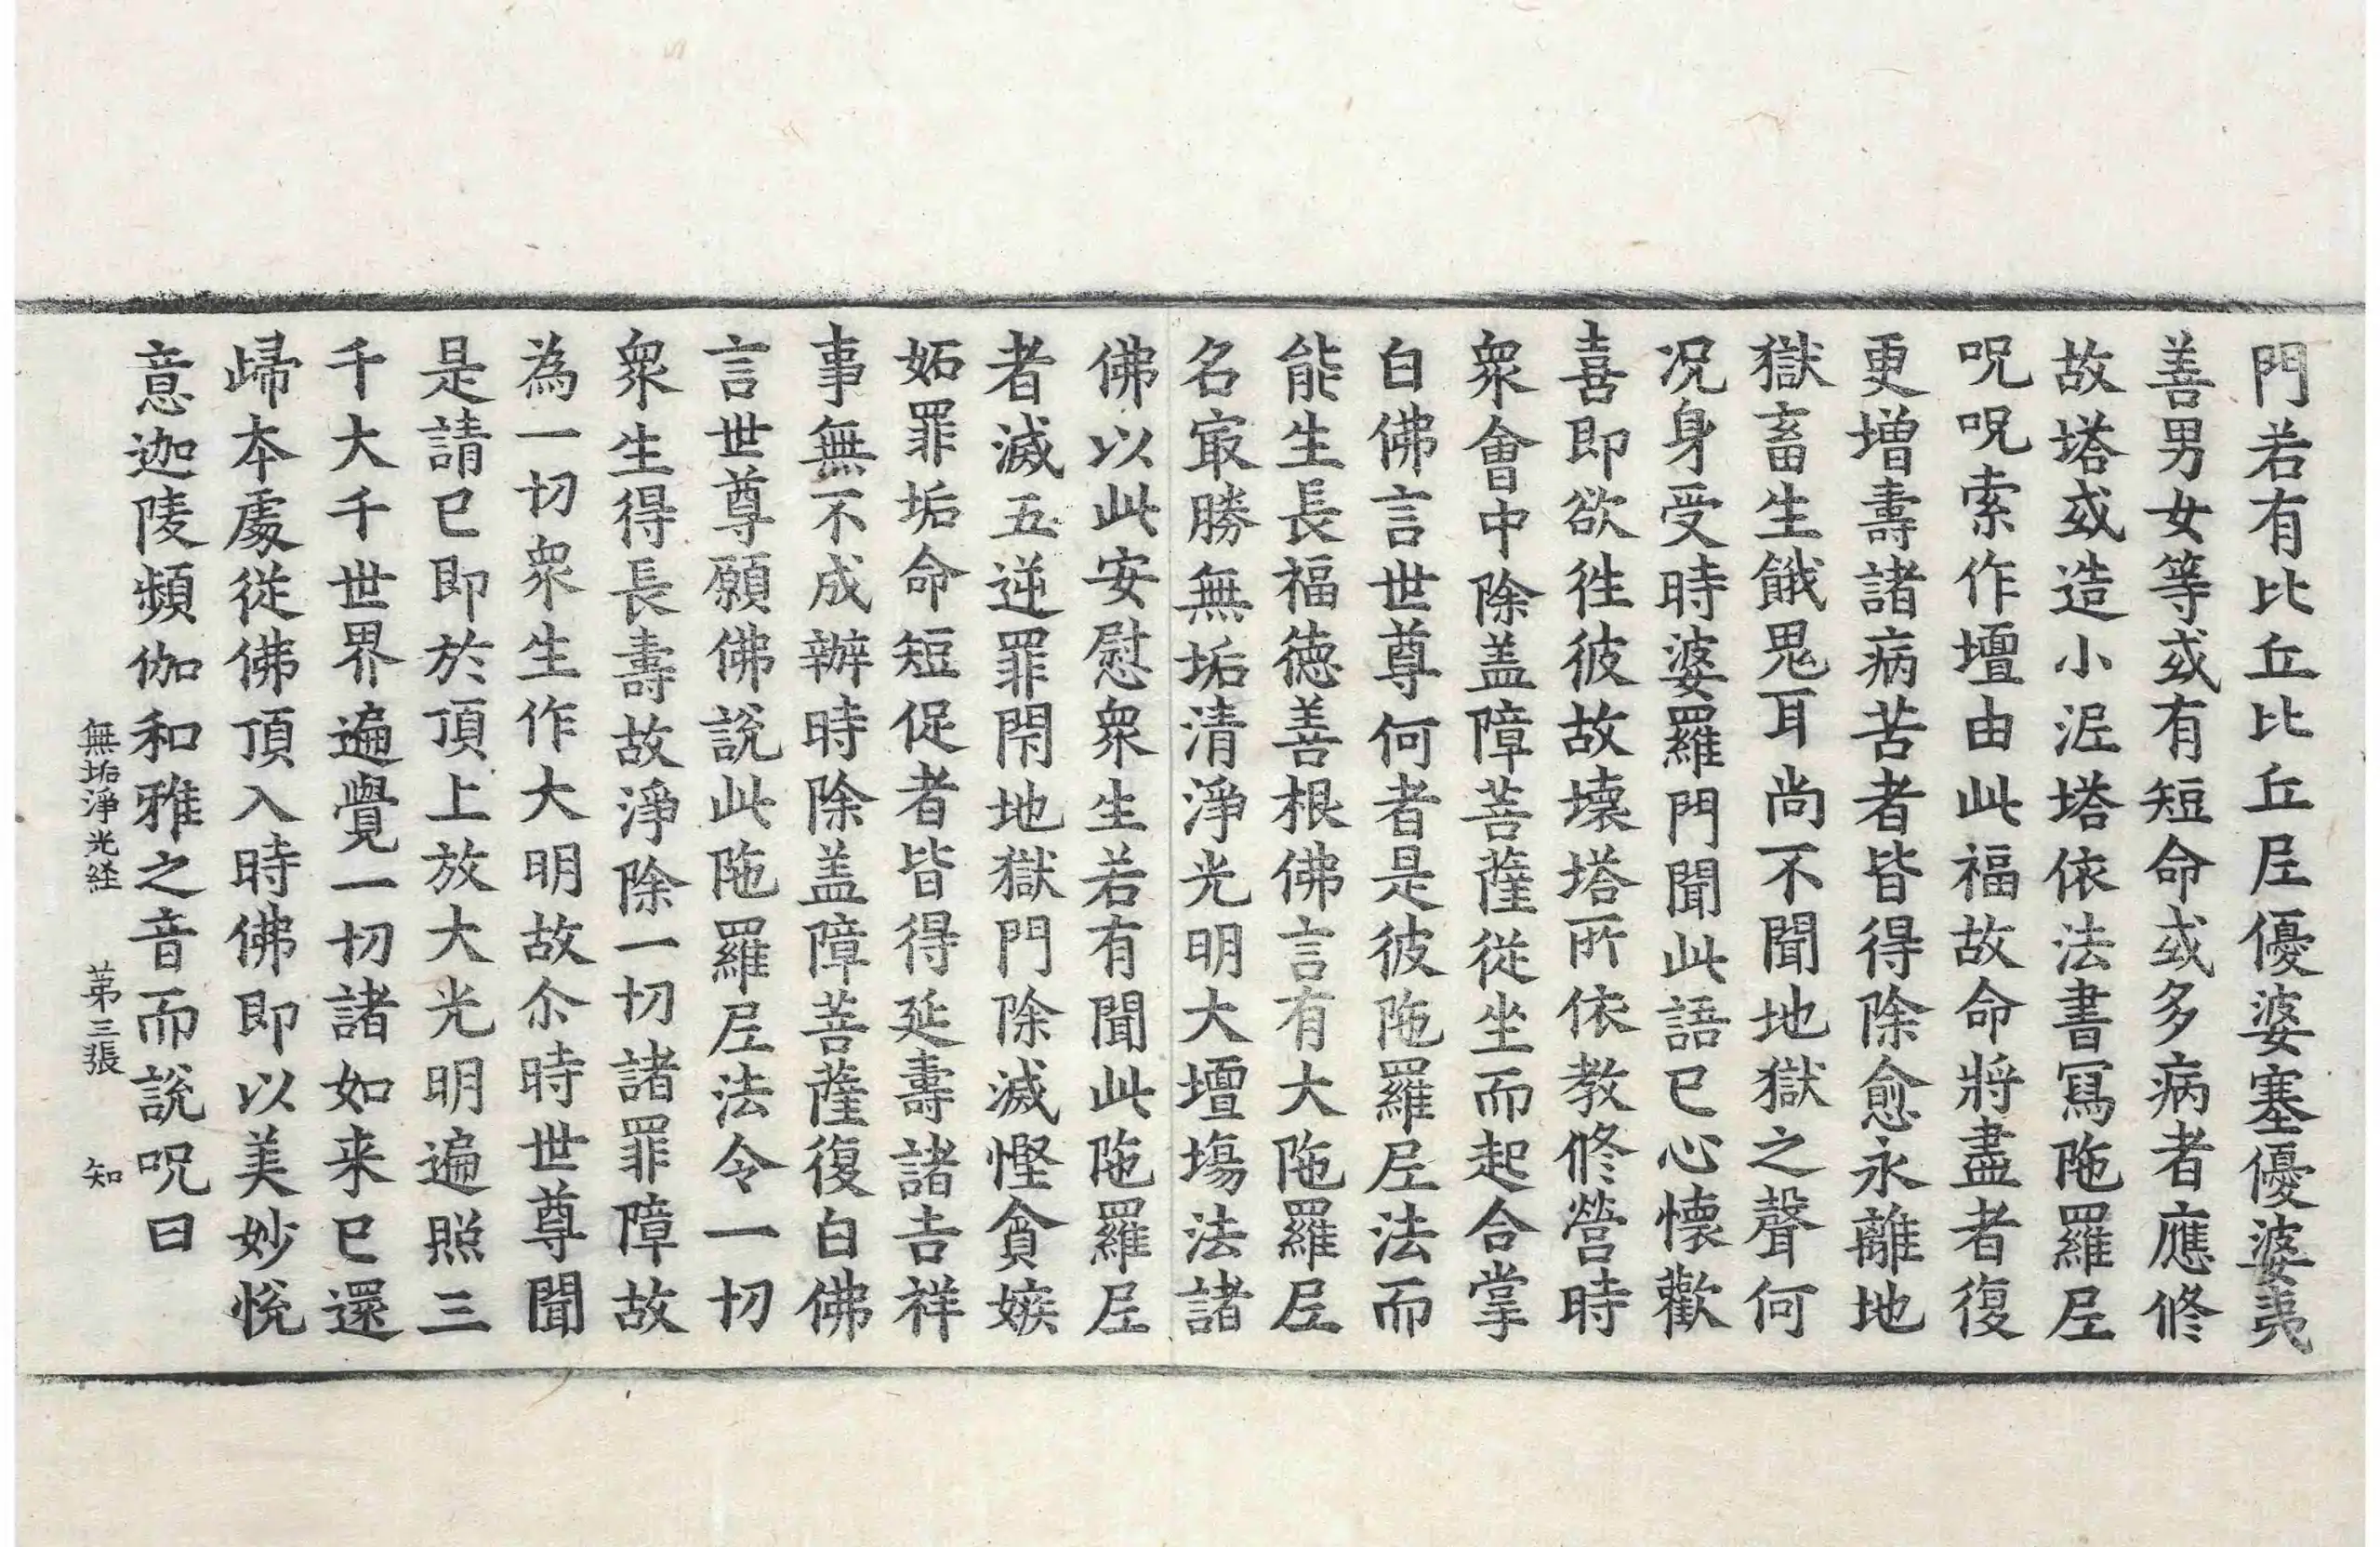 門若有比丘比丘𡰱優婆塞優婆夷
善男女等或有短命或多病者應修
故塔或造小泥塔依法書寫陁羅𡰱
呪呪索作壇由此福故命將盡者復
更增壽諸病苦者皆得除愈永離地
獄畜生餓鬼耳尚不聞地獄之聲何
况身受時婆羅門聞此語已心懷歡
喜即欲往彼故壞塔所依教修營時
衆會中除盖障菩薩從坐而起合掌
白佛言世尊何者是彼陁羅𡰱法而
能生長福德善根佛言有大陁羅𡰱
名㝡勝無垢清淨光明大壇塲法諸
佛以此安慰衆生若有聞此陁羅𡰱
者滅五逆罪閇地獄門除滅慳貪嫉
妬罪垢命短促者皆得延壽諸吉祥
事無不成辦時除盖障菩薩復白佛
言世尊願佛說此陁羅𡰱法令一切
衆生得長壽故淨除一切諸罪障故
為一切衆生作大明故尒時世尊聞
是請已即於頂上放大光明遍照三
千大千世界遍覺一切諸如来已還
歸本處從佛頂入時佛即以美妙悅
意迦陵頻伽和雅之音而說呪曰
無垢淨光経 苐三張 知